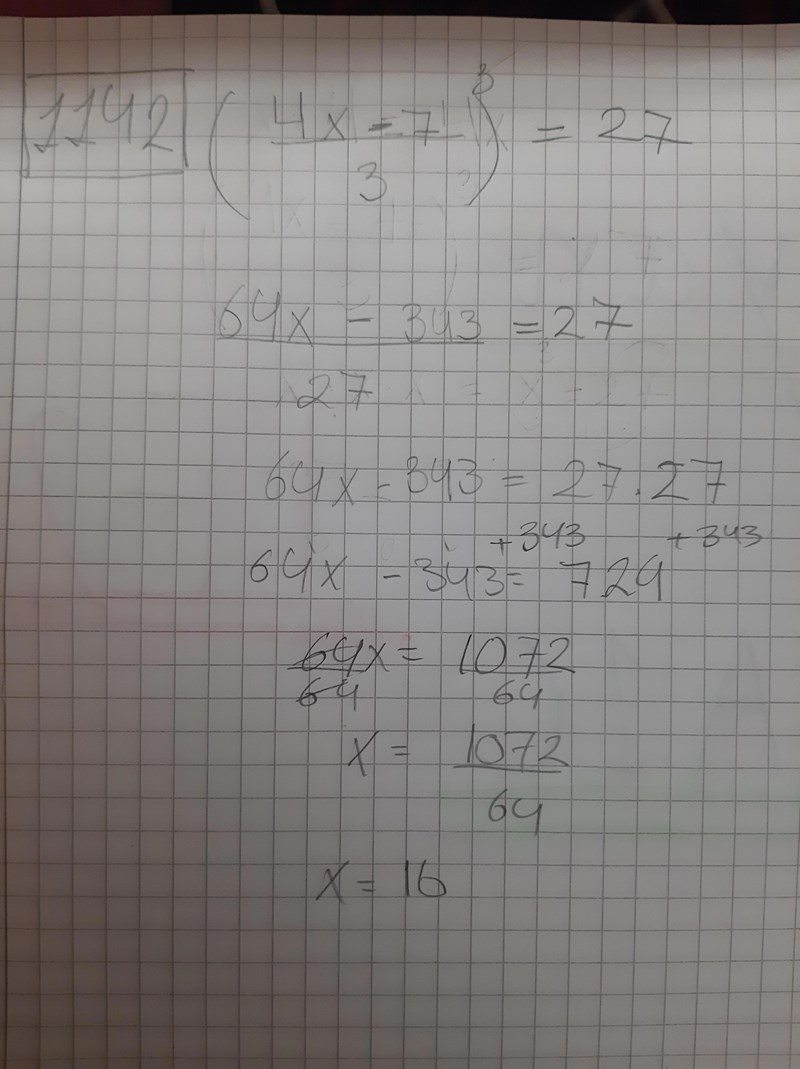 1142 (4x - 7 / 3)³ = 27
64x - 343 / 27 = 27
64x - 343 = 27.27
+343 +343
64x - 343 = 729
64x / 64 = 1072 / 64
x = 1072 / 64
x = 16